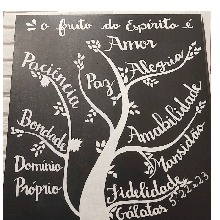 o fruto do Espírito é
Amor
Alegria
Paciência
Paz
Amabilidade
Bondade
Mansidão
Domínio
Próprio
Fidelidade
Gálatas 5:22e23